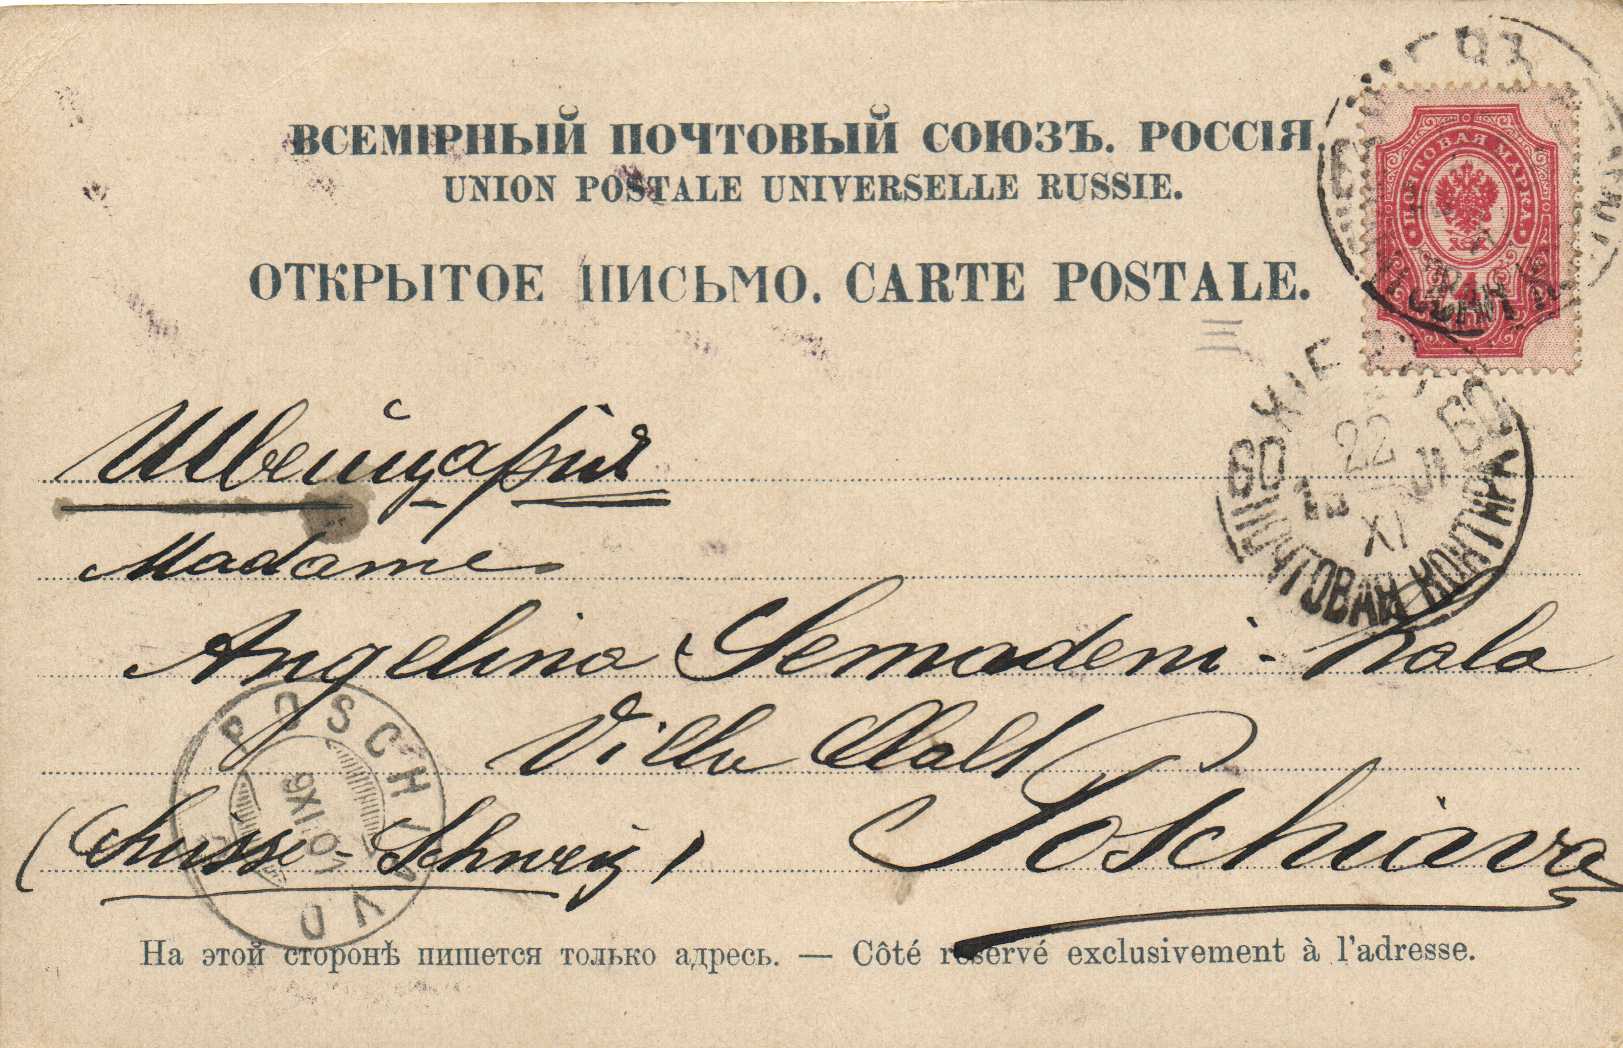 ВСЕМІРНЫЙ ПОЧТОВЫЙ СОЮЗЪ. РОССІЯ.
UNION POSTALE UNIVERSELLE RUSSIE.
ОТКРЫТОЕ ПИСЬМО. CARTE POSTALE.
ПОЧТОВАЯ МАРКА
4
60 60
22
XI
ПОЧТОВАЯ КОНТОРА
Швейцарія
Madame
Angelina Semadeni-
Villa
Poschiavo
(Suisse - Schweiz)
POSCHIAVO
На этой сторонѣ пишется только адресъ. — Côté réservé exclusivement à l'adresse.